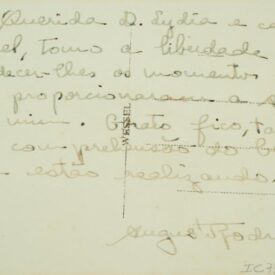 Querida D. Lydia e ca
el, tomo a liberdade
decer-lhes os momento
proporcionaram a
mim. Grato fico, t
com prehensão do
estão realizando.
Rodr
WESSEL
IC7